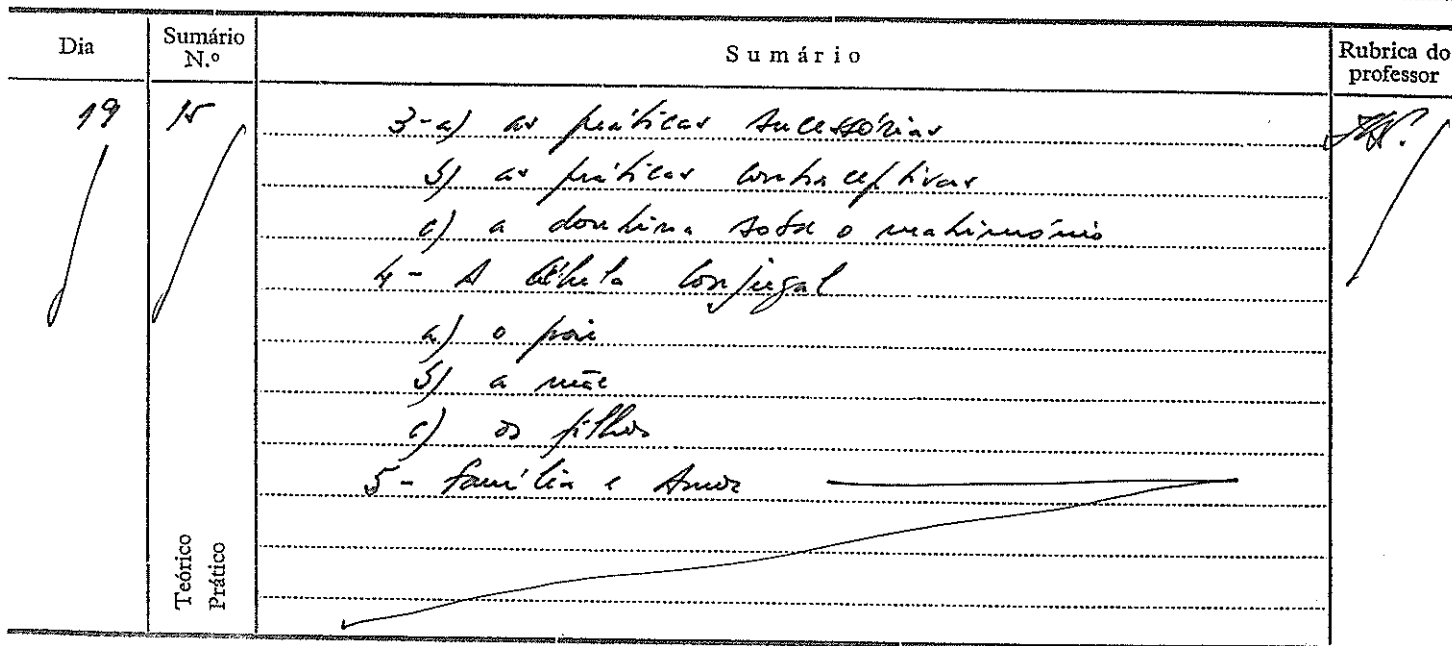 Dia Sumário N.º Sumário Rubrica do professor
19 15 3-a) as práticas sucessórias
b) as práticas contraceptivas
c) a doutrina sobre o matrimónio
4- A célula conjugal
a) o pai
b) a mãe
c) os filhos
5- família e Amor
Teórico
Prático